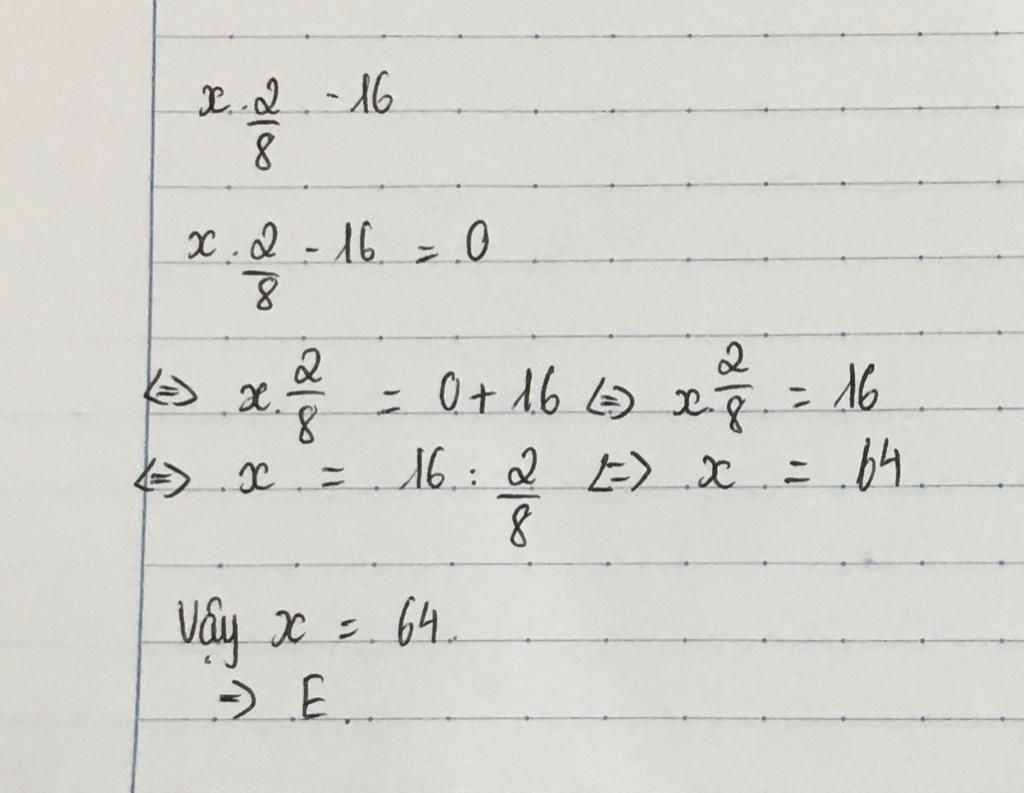 x . 2/8 - 16
x . 2/8 - 16 = 0
<=> x . 2/8 = 0 + 16 <=> x . 2/8 = 16
<=> x = 16 : 2/8 <=> x = 64
Vậy x = 64.
=> E.